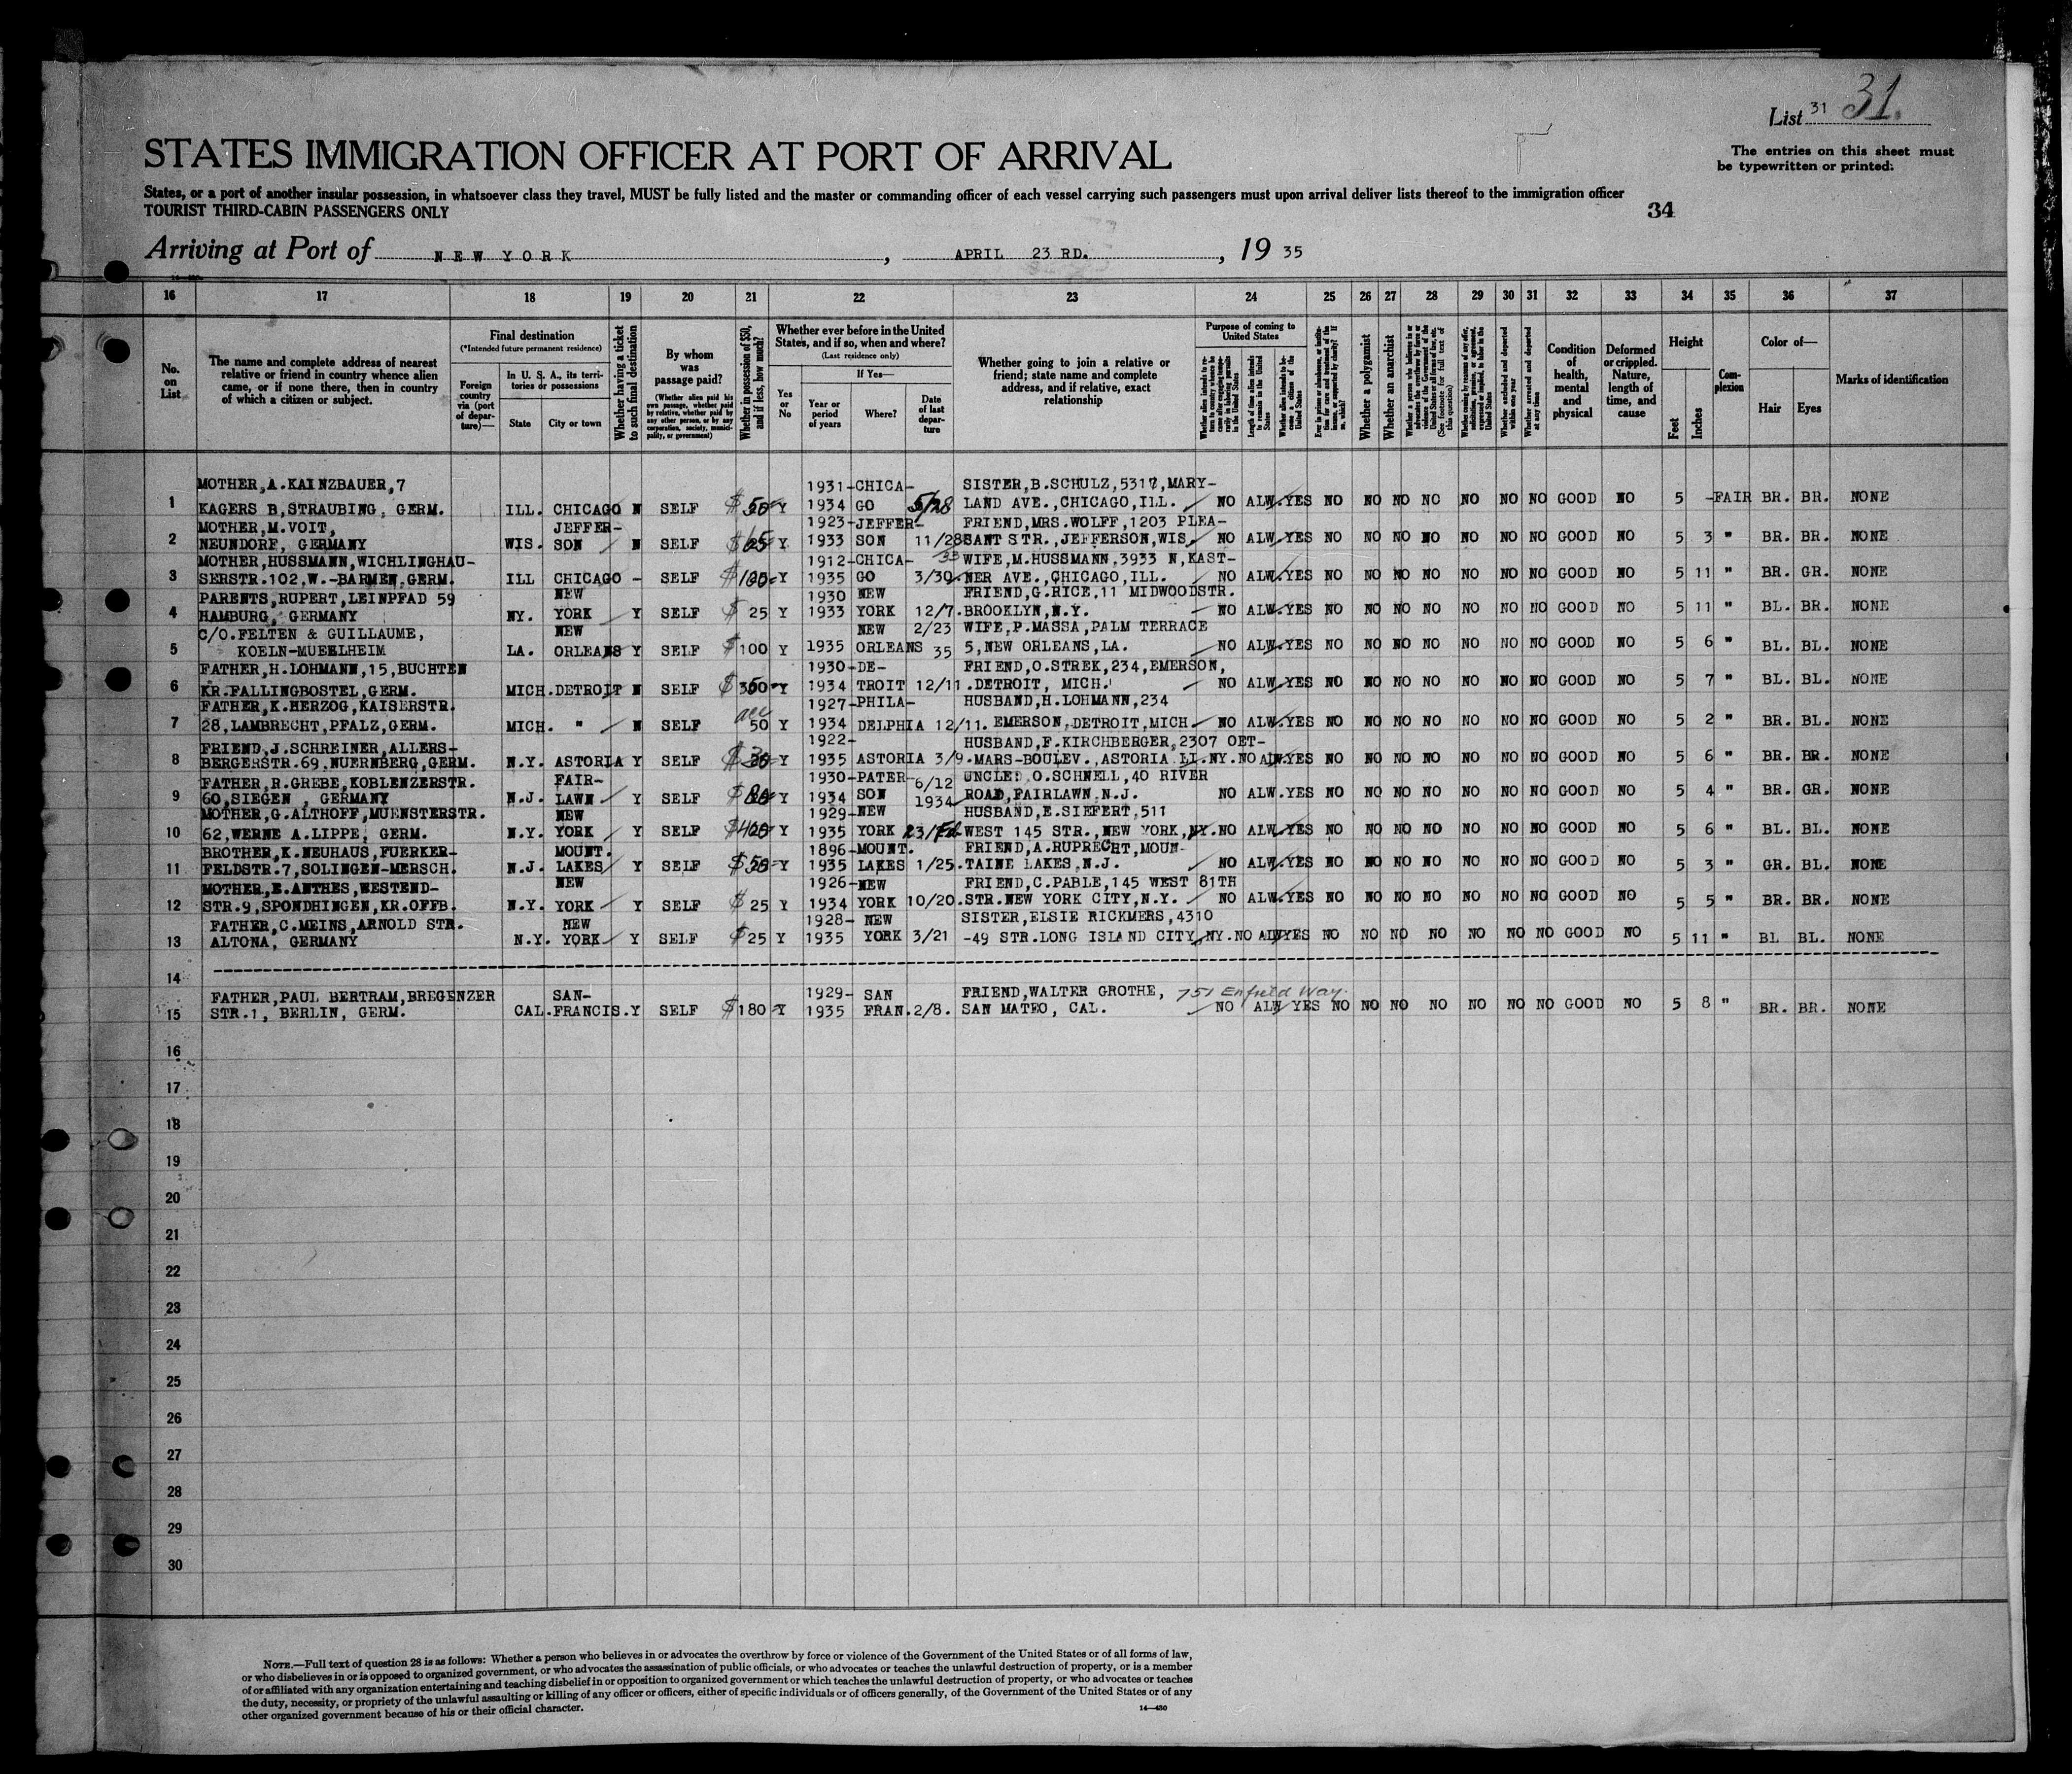 List 31 31.
STATES IMMIGRATION OFFICER AT PORT OF ARRIVAL
The entries on this sheet must
be typewritten or printed.
States, or a port of another insular possession, in whatsoever class they travel, MUST be fully listed and the master or commanding officer of each vessel carrying such passengers must upon arrival deliver lists thereof to the immigration officer
TOURIST THIRD-CABIN PASSENGERS ONLY
34
Arriving at Port of NEW YORK, APRIL 23 RD., 19 35
16 17 18 19 20 21 22 23 24 25 26 27 28 29 30 31 32 33 34 35 36 37
No. on List
The name and complete address of nearest relative or friend in country whence alien came, or if none there, then in country of which a citizen or subject.
Final destination
(*Intended future permanent residence)
Foreign country via (port of departure)—
In U. S. A., its territories or possessions
State
City or town
Whether having a ticket to such final destination
By whom was passage paid?
(Whether alien paid his own passage, whether paid by relative, whether paid by any other person, or by any corporation, society, municipality, or government)
Whether in possession of $50, and if less, how much?
Whether ever before in the United States, and if so, when and where?
(Last residence only)
Yes or No
If Yes—
Year or period of years
Where?
Date of last departure
Whether going to join a relative or friend; state name and complete address, and if relative, exact relationship
Purpose of coming to United States
Whether alien intends to return to country whence he came after engaging temporarily in laboring pursuits in the United States
Length of time alien intends to remain in the United States
Whether alien intends to become a citizen of the United States
Whether a polygamist
Whether an anarchist
(See footnote for full text of this question)
Whether excluded and deported within one year
Whether arrested and deported at any time
Condition of health, mental and physical
Deformed or crippled. Nature, length of time, and cause
Height
Feet
Inches
Complexion
Color of—
Hair
Eyes
Marks of identification
MOTHER,A.KAINZBAUER,7 1931-CHICA- SISTER,B.SCHULZ,5317,MARY-
1 KAGERS B,STRAUBING, GERM. ILL. CHICAGO N SELF $50 Y 1934 GO 5/28 LAND AVE.,CHICAGO,ILL. NO ALW.YES NO NO NO NO NO NO NO GOOD NO 5 -FAIR BR. BR. NONE
MOTHER,M.VOIT, JEFFER- 1923-JEFFER- FRIEND,MRS.WOLFF,1203 PLEA-
2 NEUNDORF, GERMANY WIS. SON N SELF $65 Y 1933 SON 11/28 SANT STR.,JEFFERSON,WIS. NO ALW.YES NO NO NO NO NO NO NO GOOD NO 5 3 " BR. BR. NONE
MOTHER,HUSSMANN,WICHLINGHAU- 1912-CHICA- 33 WIFE,M.HUSSMANN,3933 N,KAST-
3 SERSTR.102,W.-BARMEN,GERM. ILL CHICAGO - SELF $100 Y 1935 GO 3/30 NER AVE.,CHICAGO,ILL. NO ALW.YES NO NO NO NO NO NO NO GOOD NO 5 11 " BR. GR. NONE
PARENTS,RUPERT,LEINPFAD 59 NEW 1930 NEW FRIEND,G.RICE,11 MIDWOODSTR.
4 HAMBURG, GERMANY NY. YORK Y SELF $ 25 Y 1933 YORK 12/7. BROOKLYN,N.Y. NO ALW.YES NO NO NO NO NO NO NO GOOD NO 5 11 " BL. BR. NONE
C/O.FELTEN & GUILLAUME, NEW NEW 2/23 WIFE,P.MASSA,PALM TERRACE
5 KOELN-MUEHLHEIM LA. ORLEANS Y SELF $100 Y 1935 ORLEANS 35 5,NEW ORLEANS,LA. NO ALW.YES NO NO NO NO NO NO NO GOOD NO 5 6 " BL. BL. NONE
FATHER,H.LOHMANN,15,BUCHTEN 1930-DE- FRIEND,O.STREK,234,EMERSON,
6 KR.FALLINGBOSTEL,GERM. MICH.DETROIT N SELF $350 Y 1934 TROIT 12/11.DETROIT, MICH. NO ALW.YES NO NO NO NO NO NO NO GOOD NO 5 7 " BL. BL. NONE
FATHER,K.HERZOG,KAISERSTR. 1927-PHILA- HUSBAND,H.LOHMANN,234
7 28,LAMBRECHT,PFALZ,GERM. MICH. " N SELF 50 Y 1934 DELPHIA 12/11. EMERSON,DETROIT,MICH. NO ALW.YES NO NO NO NO NO NO NO GOOD NO 5 2 " BR. BL. NONE
FRIEND,J.SCHREINER,ALLERS- 1922- HUSBAND,F.KIRCHBERGER,2307 OET-
8 BERGERSTR.69,NUERNBERG,GERM. N.Y. ASTORIA Y SELF $30 Y 1935 ASTORIA 3/9.MARS-BOULEV.,ASTORIA LI.NY.NO ALW.YES NO NO NO NO NO NO NO GOOD NO 5 6 " BR. BR. NONE
FATHER,R.GREBE,KOBLENZERSTR. FAIR- 1930-PATER- 6/12 UNCLE: O.SCHNELL,40 RIVER
9 60,SIEGEN , GERMANY N.J. LAWN Y SELF $ Y 1934 SON 1934 ROAD,FAIRLAWN,N.J. NO ALW.YES NO NO NO NO NO NO NO GOOD NO 5 4 " BR. GR. NONE
MOTHER,G.ALTHOFF,MUENSTERSTR. NEW 1929-NEW HUSBAND,E.SIEFERT,511
10 62,WERNE A.LIPPE, GERM. N.Y. YORK Y SELF $400 Y 1935 YORK WEST 145 STR.,NEW YORK,NY.NO ALW.YES NO NO NO NO NO NO NO GOOD NO 5 6 " BL. BL. NONE
BROTHER,K.NEUHAUS,FUERKER- MOUNT. 1896-MOUNT. FRIEND,A.RUPRECHT,MOUN-
11 FELDSTR.7,SOLINGEN-MERSCH. N.J. LAKES Y SELF $50 Y 1935 LAKES 1/25.TAINE LAKES,N.J. NO ALW.YES NO NO NO NO NO NO NO GOOD NO 5 3 " GR. BL. NONE
MOTHER,E.ANTHES,WESTEND- NEW 1926-NEW FRIEND,C.PABLE,145 WEST 81TH
12 STR.9,SPONDHINGEN,KR.OFFB. N.Y. YORK Y SELF $ 25 Y 1934 YORK 10/20.STR.NEW YORK CITY,N.Y. NO ALW.YES NO NO NO NO NO NO NO GOOD NO 5 5 " BR. BR. NONE
FATHER,C.MEINS,ARNOLD STR. NEW 1928- NEW SISTER,ELSIE RICKMERS,4310
13 ALTONA, GERMANY N.Y. YORK Y SELF $25 Y 1935 YORK 3/21 -49 STR.LONG ISLAND CITY,NY.NO ALWYES NO NO NO NO NO NO NO GOOD NO 5 11 " BL BL. NONE
14
FATHER,PAUL BERTRAM,BREGENZER SAN- 1929- SAN FRIEND,WALTER GROTHE, 751 Enfield Way.
15 STR.1, BERLIN, GERM. CAL.FRANCIS.Y SELF $180 Y 1935 FRAN.2/8. SAN MATEO, CAL. NO ALW YES NO NO NO NO NO NO NO GOOD NO 5 8 " BR. BR. NONE
16
17
18
19
20
21
22
23
24
25
26
27
28
29
30
NOTE.—Full text of question 28 is as follows: Whether a person who believes in or advocates the overthrow by force or violence of the Government of the United States or of all forms of law,
or who disbelieves in or is opposed to organized government, or who advocates the assassination of public officials, or who advocates or teaches the unlawful destruction of property, or is a member
of or affiliated with any organization entertaining and teaching disbelief in or opposition to organized government or which teaches the unlawful destruction of property, or who advocates or teaches
the duty, necessity, or propriety of the unlawful assaulting or killing of any officer or officers, either of specific individuals or of officers generally, of the Government of the United States or of any
other organized government because of his or their official character.
14—430